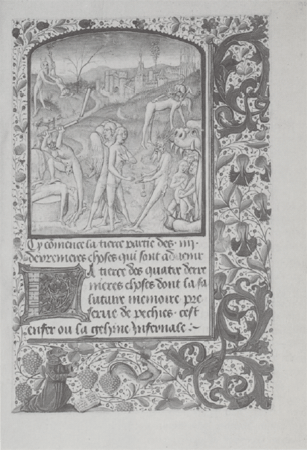 Cy comence la tierce partie des iiij
derrenieres choses qui sont aduenir
La tierce des quatre derre
nieres choses dont la sa
lutaire memoire pre
serue de pechies cest
enfer ou la gehine infernale :~